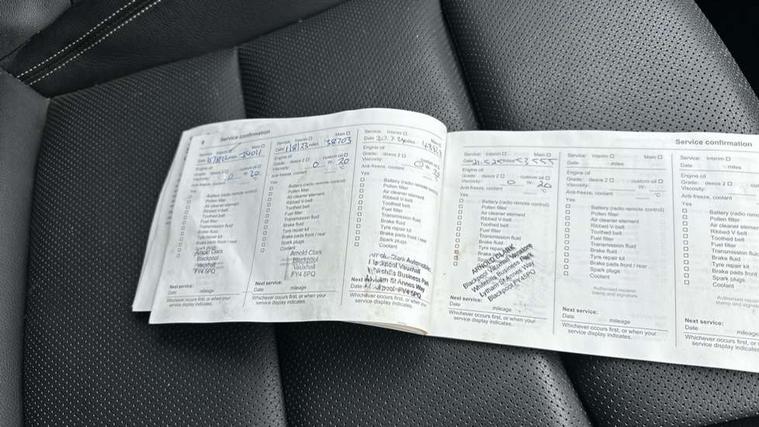 Service confirmation
Service: Interim Main
Date miles
Engine oil
Grade: dexos 2 custom oil
Viscosity: 0 W- 20
Anti-freeze, coolant
Yes
Battery (radio remote control)
Pollen filter
Air cleaner element
Ribbed V-belt
Toothed belt
Fuel filter
Transmission fluid
Brake fluid
Tyre repair kit
Brake pads front / rear
Spark plugs
Coolant
Arnold Clark
Blackpool
Vauxhall
FY4 5PQ
Next service:
Date mileage
Whichever occurs first, or when your
service display indicates.
Service: Interim Main
Date 1/8/23 miles 38703
Engine oil
Grade: dexos 2 custom oil
Viscosity: 0 W- 20
Anti-freeze, coolant
Yes
Battery (radio remote control)
Pollen filter
Air cleaner element
Ribbed V-belt
Toothed belt
Fuel filter
Transmission fluid
Brake fluid
Tyre repair kit
Brake pads front / rear
Spark plugs
Coolant
Arnold Clark
Blackpool
Vauxhall
FY4 5PQ
Next service:
Date mileage
Whichever occurs first, or when your
service display indicates.
Service: Interim Main
Date miles
Engine oil
Grade: dexos 2
Viscosity:
Anti-freeze, coolant
Yes
Battery (radio remote control)
Pollen filter
Air cleaner element
Ribbed V-belt
Toothed belt
Fuel filter
Transmission fluid
Brake fluid
Tyre repair kit
Brake pads front / rear
Spark plugs
Coolant
Blackpool Vauxhall
Whitehills Business Park
Next service:
Date
Whichever occurs first, or when your
service display indicates.
Service confirmation
Service: Interim Main
Date miles 53555
Engine oil
Grade: dexos 2 custom oil
Viscosity: 0 W- 20
Anti-freeze, coolant
Yes
Battery (radio remote control)
Pollen filter
Air cleaner element
Ribbed V-belt
Toothed belt
Fuel filter
Transmission fluid
Brake fluid
Tyre repair
Brake
ARNOLD CLARK
Blackpool Vauxhall Vanstore
Whitehills Business Park
Lytham St Annes Way
Blackpool FY4 5PQ
Next service:
Date mileage
Whichever occurs first, or when your
service display indicates.
Service: Interim Main
Date miles
Engine oil
Grade: dexos 2 custom oil
Viscosity: W-
Anti-freeze, coolant °C
Yes
Battery (radio remote control)
Pollen filter
Air cleaner element
Ribbed V-belt
Toothed belt
Fuel filter
Transmission fluid
Brake fluid
Tyre repair kit
Brake pads front / rear
Spark plugs
Coolant
Authorised repairer
stamp and signature
Next service:
Date mileage
Whichever occurs first, or when your
service display indicates.
Service: Interim
Date miles
Engine oil
Grade: dexos 2
Viscosity:
Anti-freeze, coolant
Yes
Battery (radio
Pollen filter
Air cleaner element
Ribbed V-belt
Toothed belt
Fuel filter
Transmission fluid
Brake fluid
Tyre repair kit
Brake pads front
Spark plugs
Coolant
Authorised
stamp and
Next service:
Date mileage
Whichever occurs first, or
service display indicates